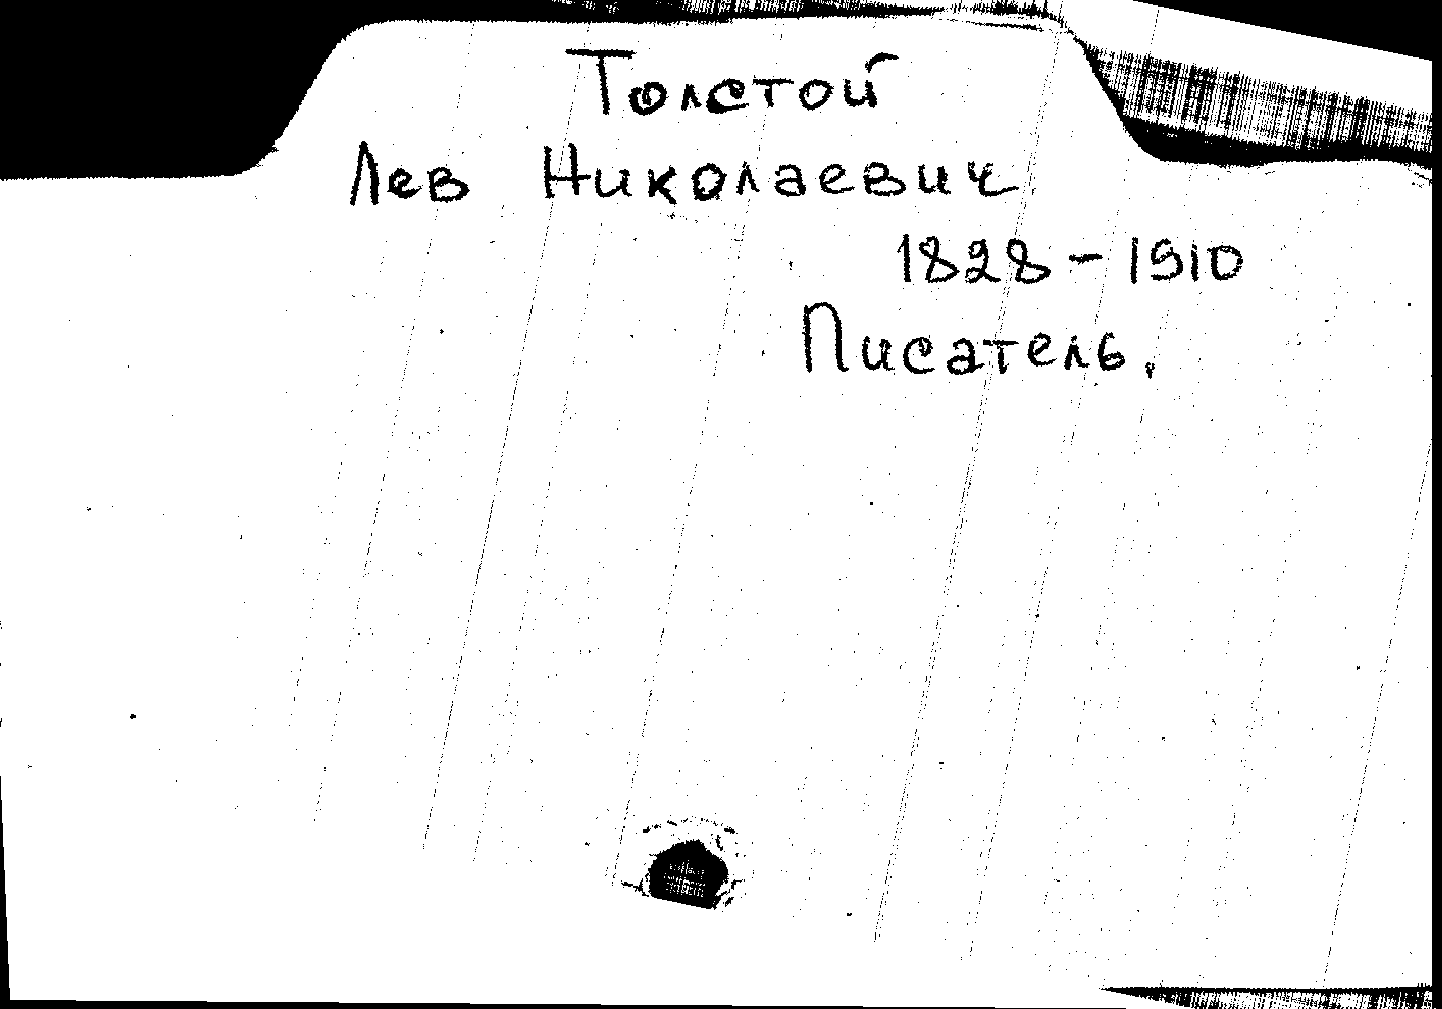 Толстой
Лев Николаевич
1828-1910
Писатель.